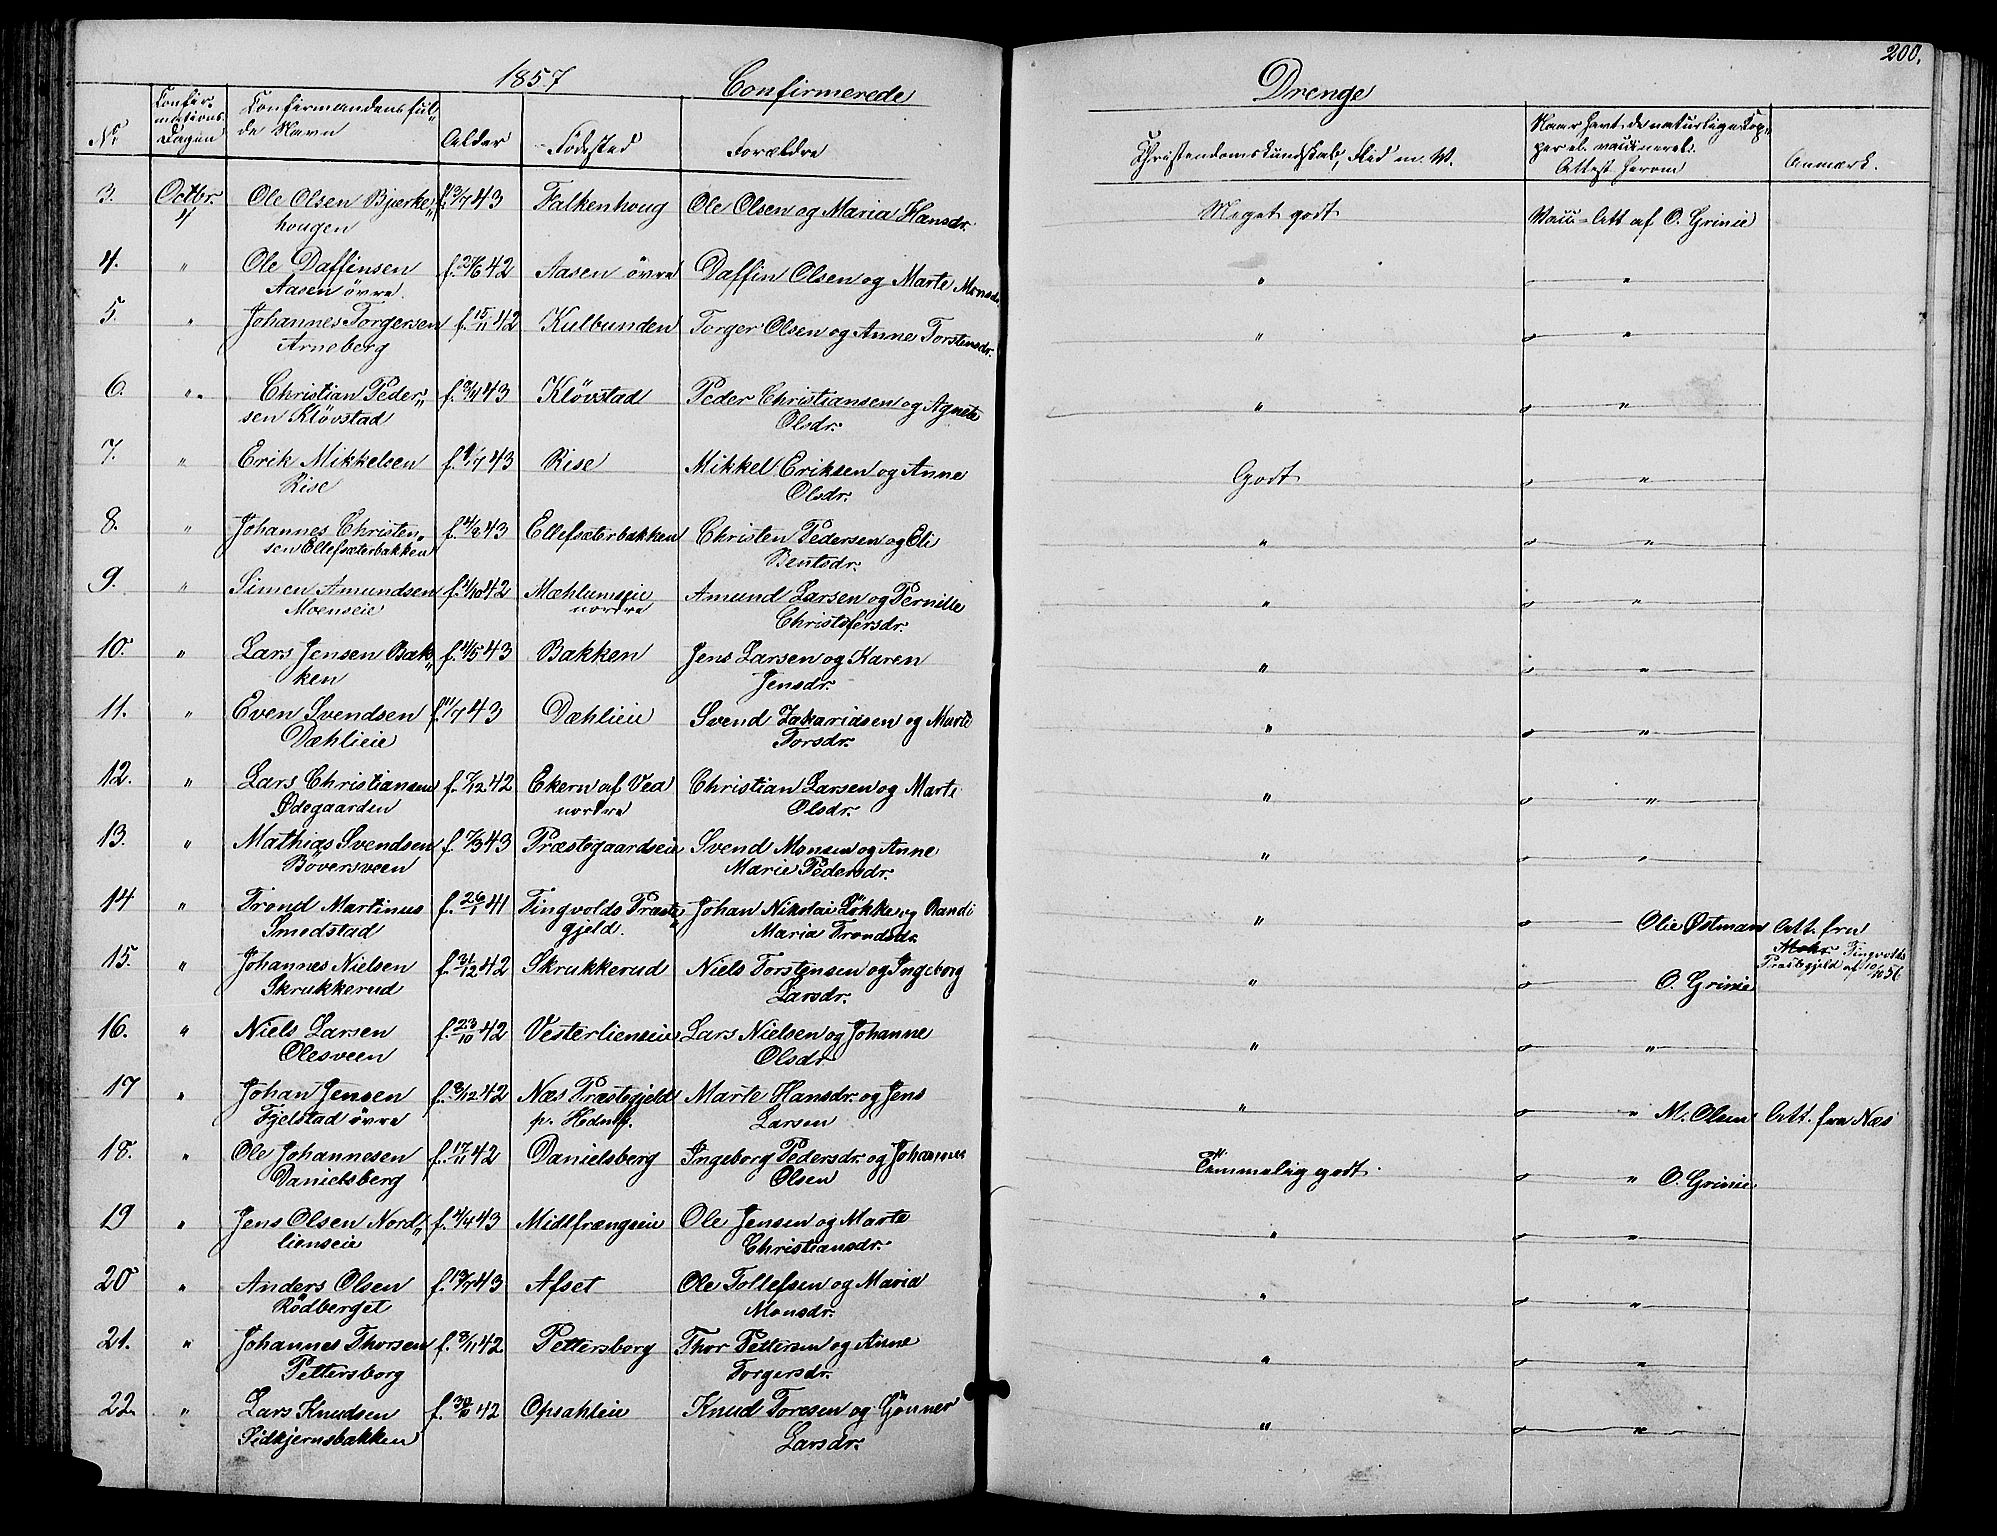 1857 Confirmerede Drenge 200,
No. Confirmations-Dagen Confirmandens fulde Navn Alder Fødested Forældre Christendomskundskab, Flid m. V. Naar havt de naturlige Kopper el. vaccineret. Attest herom Anmærk.
3. Octbr. Ole Olsen Bjerke„ 43 Falkenhoug Ole Olsen og Maria Hansdr. Meget godt Vacc-Att af O. Grinie
4 hougen
4. " Ole Daffinsen f. 42 Aasen övre Daffin Olsen og Marte Monsdr. " "
Aasen övre.
5. " Johannes Torgersen f. 15/11 42 Kulbunden Torger Olsen og Anne Torstensdr. " "
Arneberg
6. " Christian Peder„ f. 43 Klövstad Peder Christiansen og Agnete " "
sen Klövstad Olsdr.
7. " Erik Mikkelsen f. 43 Rise Mikkel Eriksen og Anne Godt "
Rise Olsdr.
8. " Johannes Christen„ f. 43 Ellefsæterbakken Christen Pedersen og Eli " "
sen Ellefsæterbakken Bentsdr.
9. " Simen Amundsen f. 42 Mæhlumseie Amund Larsen og Pernille " "
Moenseie nordre Christofersdr.
10. " Lars Jensen Bak„ f. 43 Bakken Jens Larsen og Karen " "
ken Jensdr.
11. " Even Svendsen f. 11/7 43 Dæhlieie Svend Zakariasen og Marte " "
Dæhlieie Torsdr.
12. " Lars Christiansen f. 7/12 42 Ekern af Vea Christian Larsen og Marte " "
Ødegaarden nordre Olsdr.
13. " Mathias Svendsen f. 7/3 43 Præstegaardseie Svend Monsen og Anne " "
Böversveen Marie Pedersdr.
14 " Trond Martinus f. 26/1 41 Tingvolds Præste„ Johan Nikolai Løkke og Randi " Olie Østman Att. fra
Smedstad gjeld. Maria Trondsdr. Tingvolds
15. " Johannes Nielsen f. 31/12 42 Skrukkerud Niels Torstensen og Ingeborg " O. Grinie Præstegjeld af 10/10 56
Skrukkerud Larsdr.
16. " Niels Larsen f. 23/10 42 Vesterlienseie Lars Nielsen og Johanne " "
Olesveen Olsdr.
17 " Johan Jensen f. 8/12 42 Næs Præstegjeld Marte Hansdr. og Jens " " M. Olsen Att. fra Næs
Fjelstad övre p. Hedmk. Larsen
18. " Ole Johannesen f. 17/11 42 Danielsberg Ingeborg Pedersdr. og Johannes Temmelig godt. " O. Grinie
Danielsberg Olsen
19 " Jens Olsen Nord„ f. 4/4 43 Midlfrængseie Ole Jensen og Marte " "
lienseie Christiansdr.
20 " Anders Olsen f. 43 Afset Ole Tollefsen og Maria " "
Rödberget Monsdr.
21. " Johannes Thorsen f. 8/11 42 Pettersborg Thor Pettersen og Anne " "
Pettersborg Torgersdr.
22. " Lars Knudsen f. 42 Opsahleie Knud Toresen og Gönner " "
Sidkjernsbakken Larsdr.